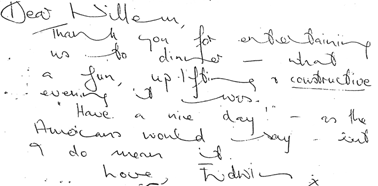 Dear Willem,
Thank you for entertaining
us to dinner – what
a fun, uplifting & constructive
evening it was.
"Have a nice day" – as the
Americans would say – but
I do mean it
Love,